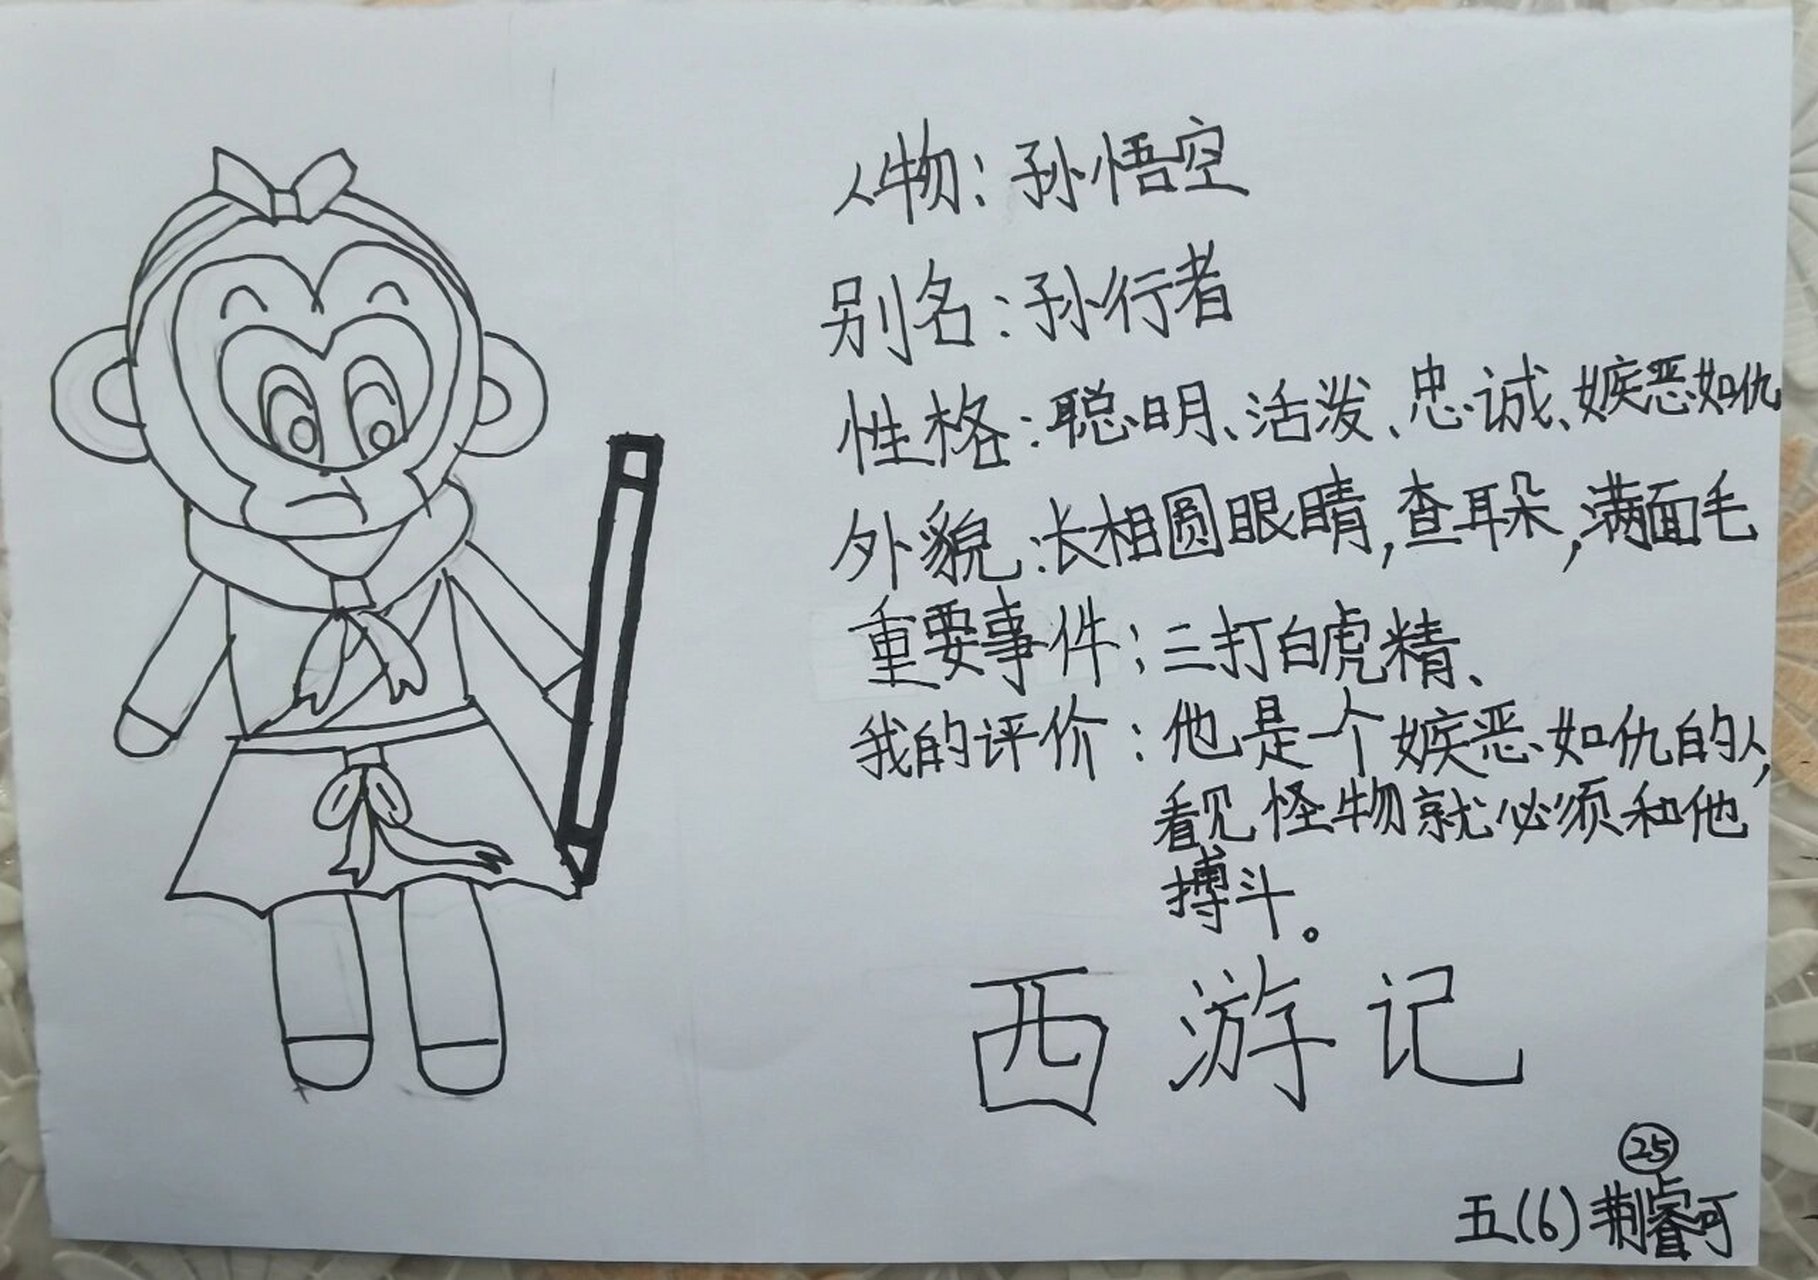 人物：孙悟空
别名：孙行者
性格：聪明、活泼、忠诚、嫉恶如仇
外貌：长相圆眼睛，查耳朵，满面毛
重要事件：三打白虎精、
我的评价：他是一个嫉恶如仇的人，
看见怪物就必须和他
搏斗。
西游记
25
五(6)荆睿可